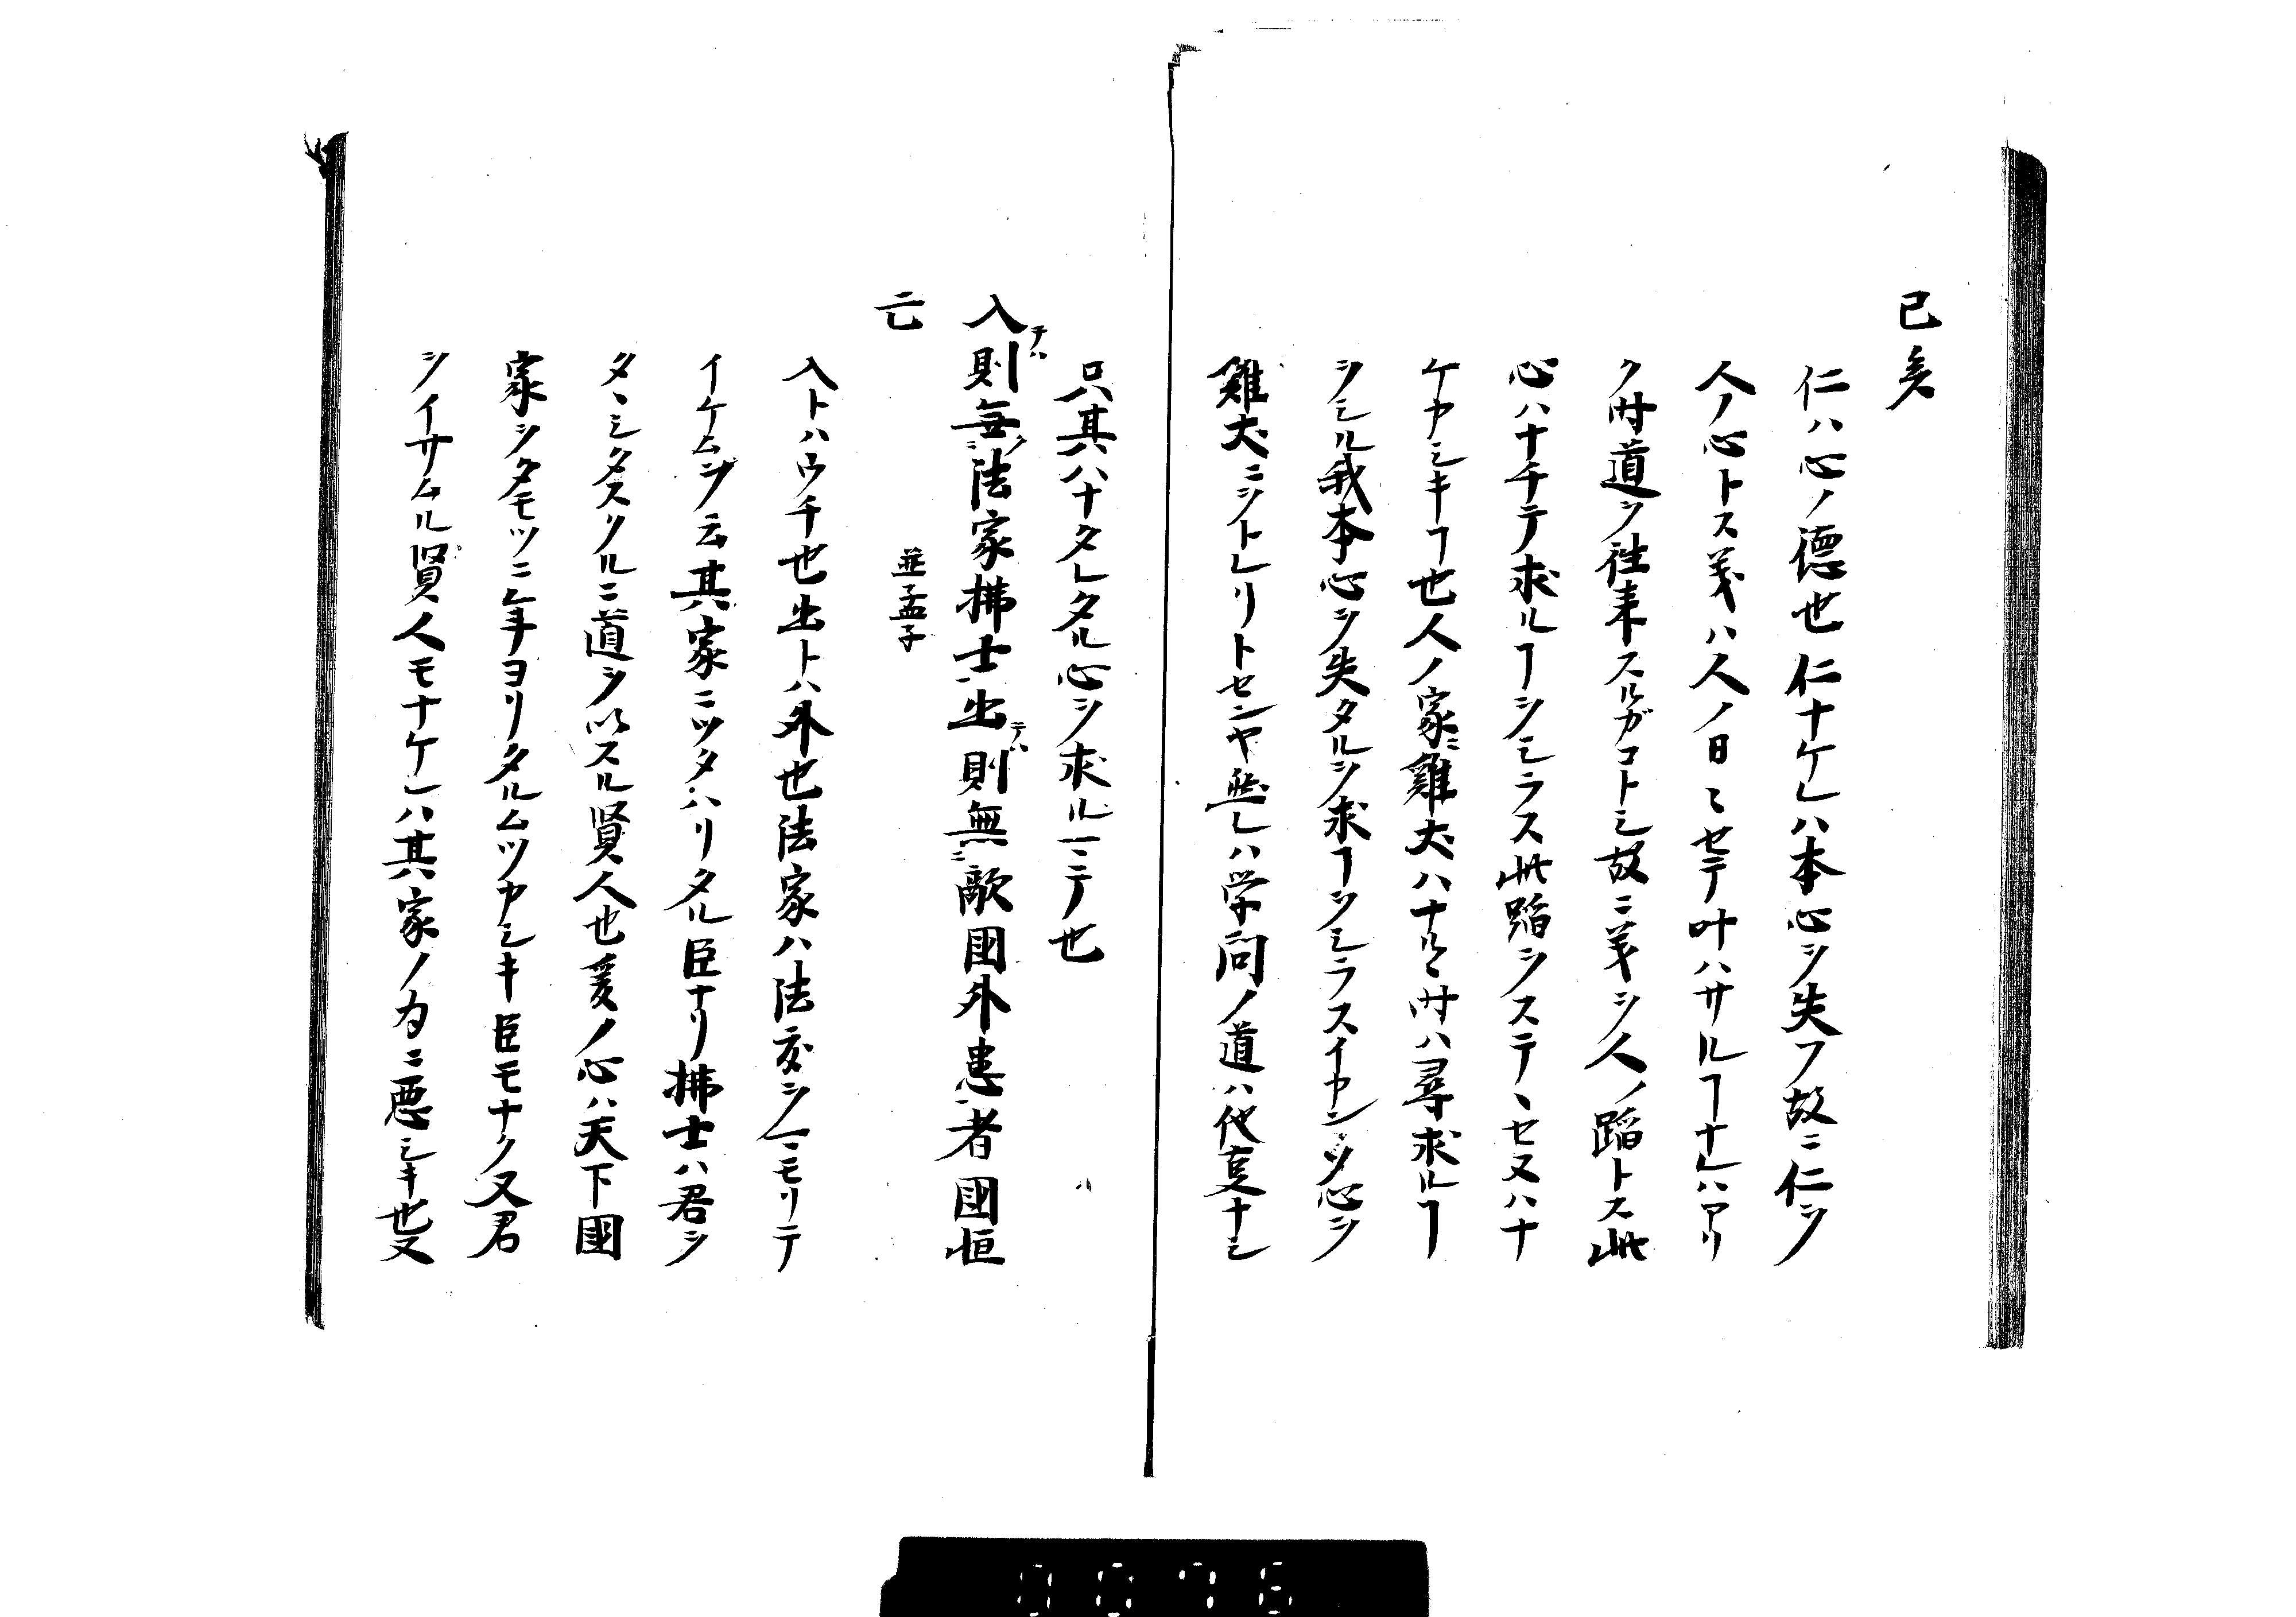 已矣
仁ハ心ノ徳也仁ナケレハ本心ヲ失フ故ニ仁ヲ
人ノ心トス義ハ人ノ日〻セテ叶ハサルヿナレハアリ
ク时道ヲ往来スルガコトシ故ニ義ヲ人ノ蹈トス此
心ハナチテ求ルヿヲシラス此蹈ヲステヽセヌハナ
ケカシキヿ也人ノ家ニ雞犬ハナルヽ时ハ尋求ルヿ
ヲシル我本心ヲ失タルヲ求ヿヲシラスイカンソ心ヲ
雞犬ニヲトレリトセンヤ然レハ学問ノ道ハ他事ナシ
只其ハナタレタル心ヲ求ルニテ也
入テハ則無法家拂士出テハ則無敵國外患者國恒
亡
並孟子
入トハウチ也出トハ外也法家ハ法度ヲマモリテ
イケムヲ云其家ニツタハリタル臣ナリ拂士ハ君ヲ
タヽシタスクルニ道ヲ以スル賢人也爰ノ心ハ天下國
家ヲタモツニ上ヨリタルムツカシキ臣モナク又君
ヲイサムル賢人モナケレハ其家ノ為ニ悪シキ也又
0076